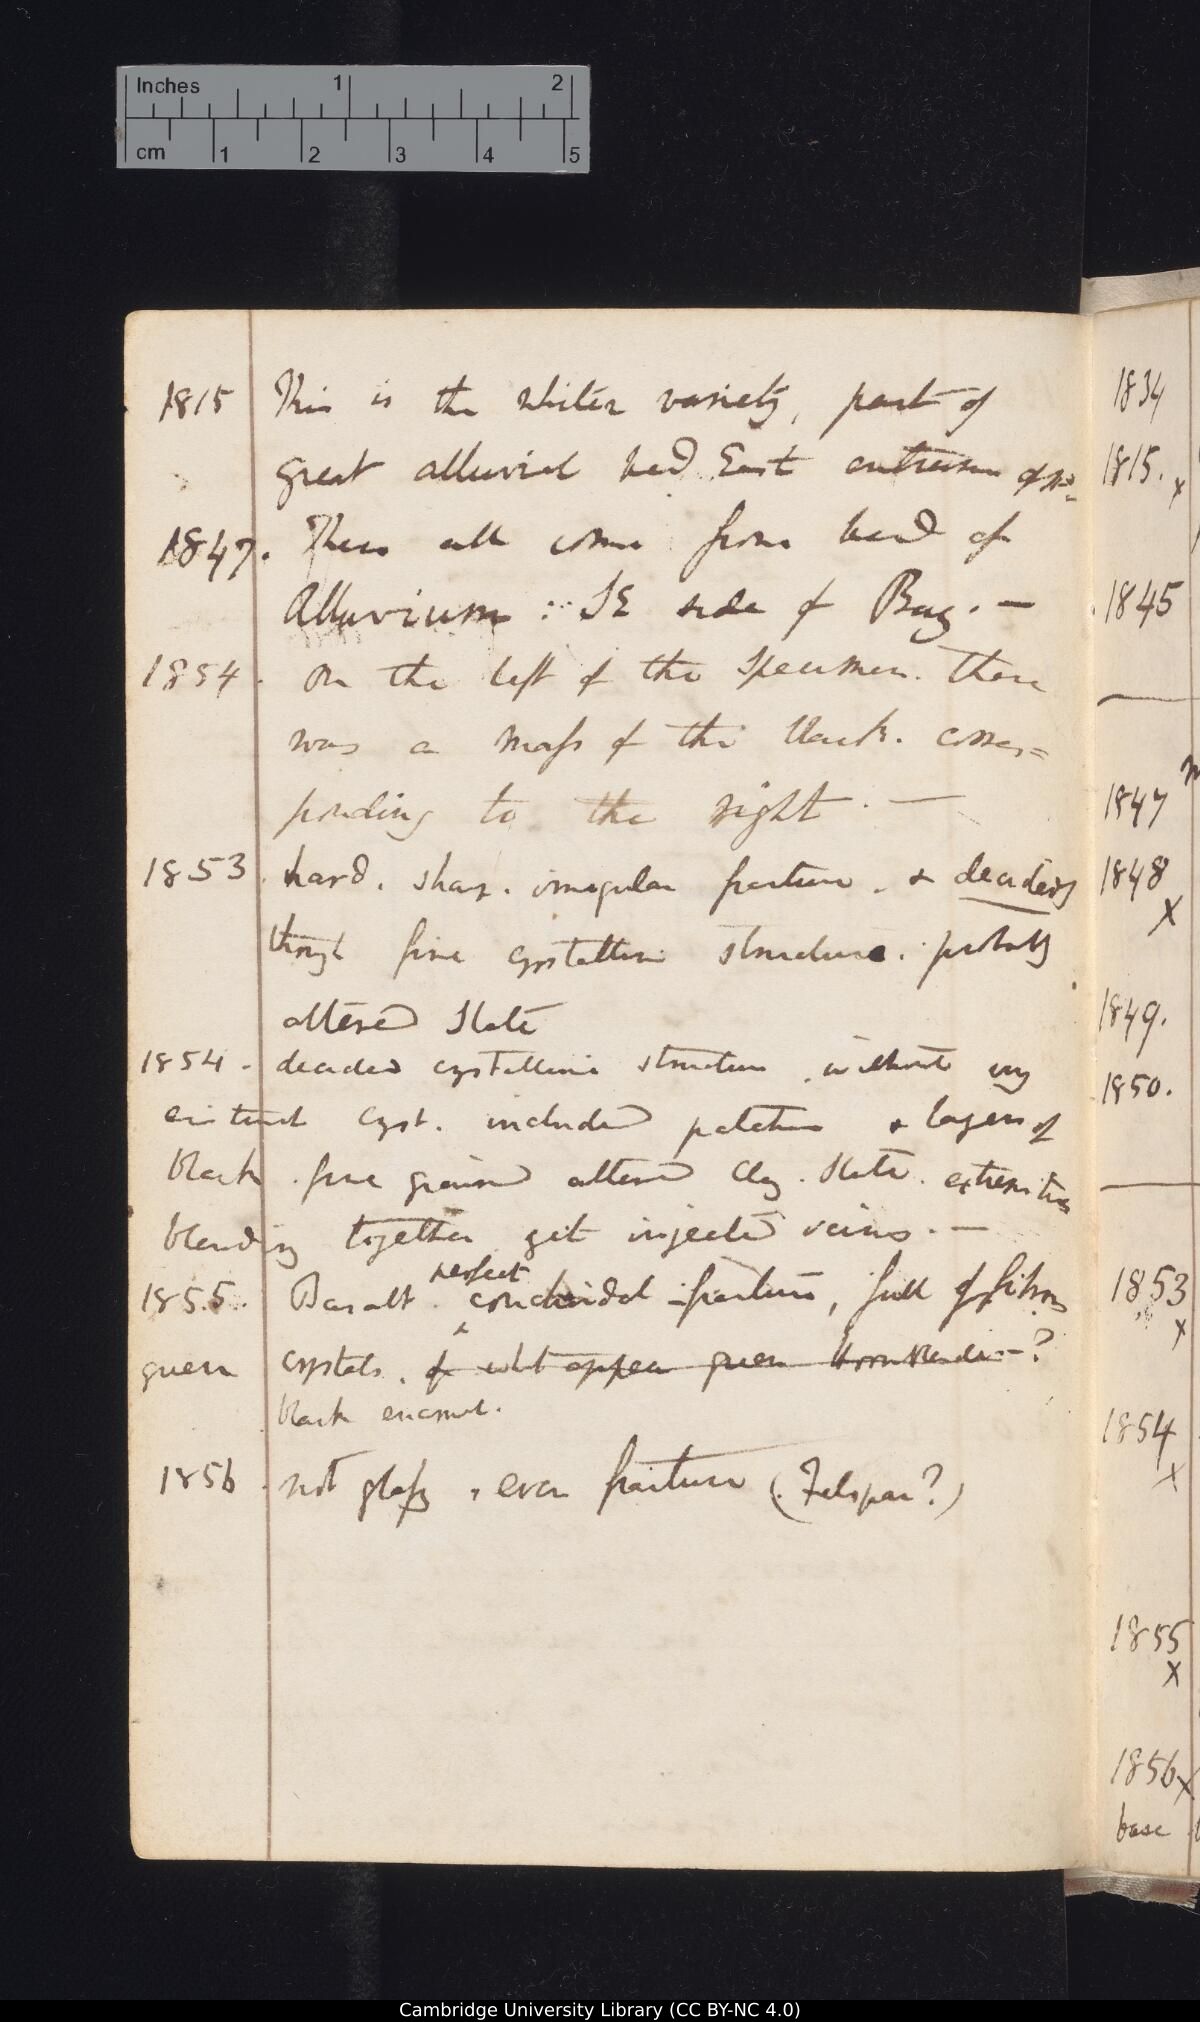 Inches 1 2
cm 1 2 3 4 5
1815 This is the whiter variety, part of
great alluvial bed East entrance of
1847. These all come from bed of
Alluvium: SE side of Bay. —
1854. On the left of the specimen. there
was a mass of the black. corres=
ponding to the right. —
1853. hard. sharp. irregular fracture. & decidedly
though fine crystalline structure. probably
altered Slate
1854. decided crystalline structure. without any
cryst. included patches & layers of
black. fine grained altered Clay. Slate. extremities
blending together yet injected veins. —
perfect
1855. Basalt. conchoidal fracture, full of fibrous
green crystals. of what appear green Hornblende —?
black enamel.
1856. not glassy, even fracture (Felspar?)
1834
1815. x
1845
1847
1848
x
1849.
1850.
1853
x
1854
x
1855
x
1856 x
base
Cambridge University Library (CC BY-NC 4.0)